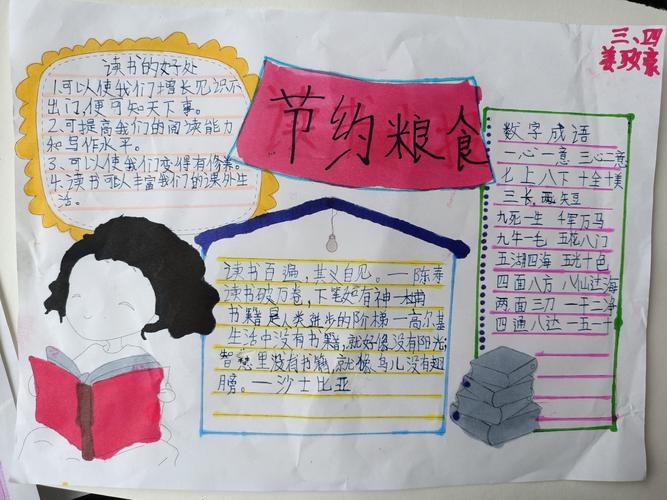 三、四
节约粮食
读书的好处
1.可以使我们增长见识不
出门,便可知天下事。
2.可提高我们的阅读能力
和写作水平。
3.可以使我们变得有修养。
4.读书可以丰富我们的课外生
活。
读书百遍,其义自见。——陈寿
读书破万卷,下笔如有神—杜甫
书籍是人类进步的阶梯—高尔基
生活中没有书籍,就好像没有阳光;
智慧里没有书籍,就像鸟儿没有翅
膀。—沙士比亚
数字成语
一心一意 三心二意
七上八下 十全十美
三长两短
九死一生 千军万马
九牛一毛 五花八门
五湖四海 五光十色
四面八方 八仙过海
两面三刀 一干二净
四通八达 一五一十